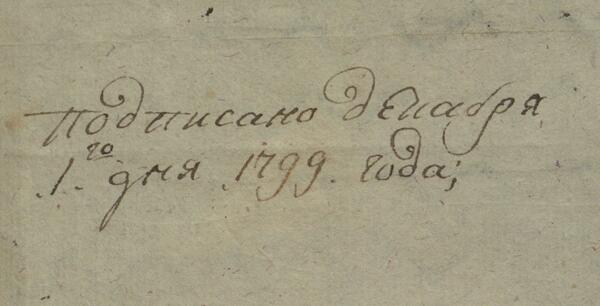 подписано декабря
.1.го дня .1799. года;